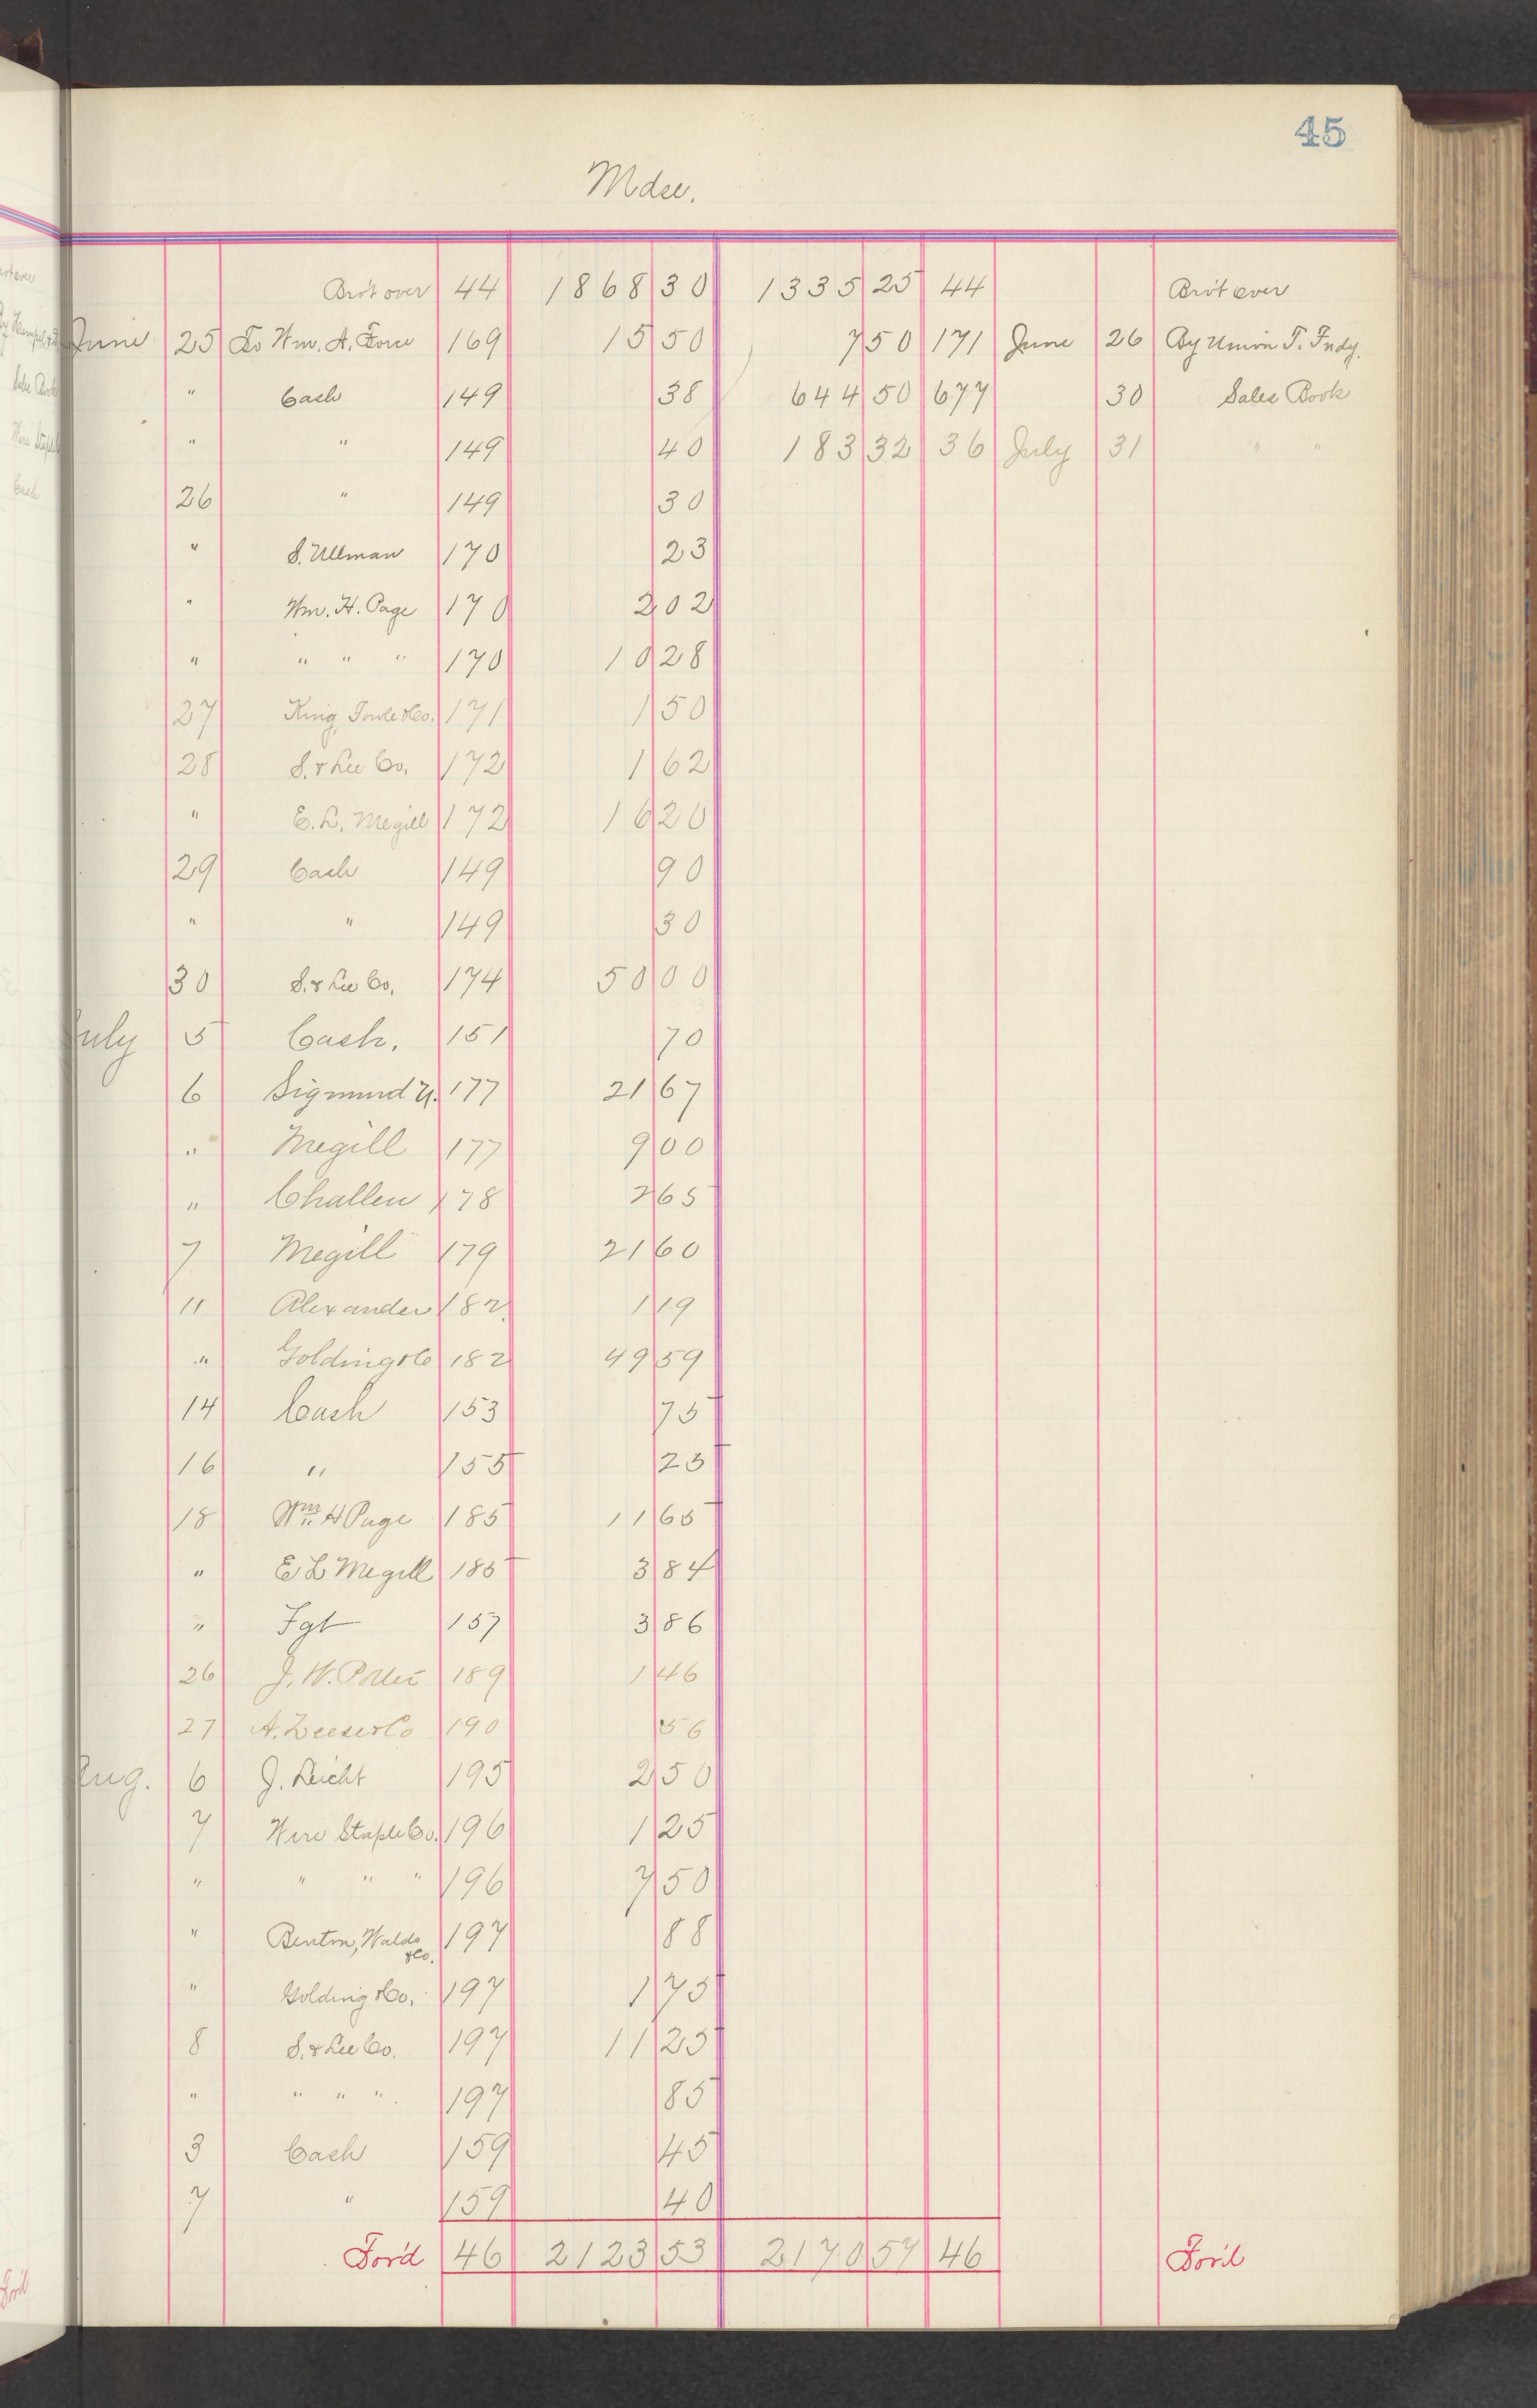 45
Mdse.
Bro't over 44 1868 30 1335 25 44 Bro't over
June 25 To Wm. A. Force 169 15 50 7 50 171 June 26 By Union T. Fndy.
" Cash 149 38 644 50 677 30 Sales Book
" " 149 40 183 32 36 July 31 " "
26 " 149 30
" S. Ullman 170 23
" Wm. H. Page 170 2 02
" " " " 170 10 28
27 King, Fowle & Co. 171 1 50
28 S. & Lee Co. 172 1 62
" E. L. Megill 172 16 20
29 Cash 149 90
" " 149 30
30 S. & Lee Co. 174 50 00
July 5 Cash. 151 70
6 Sigmund U. 177 21 67
" Megill 177 9 00
" Challen 178 2 65
7 Megill 179 21 60
11 Alexander 182 1 19
" Golding & Co 182 49 59
14 Cash 153 75
16 " 155 25
18 Wm H Page 185 11 65
" E L Megill 185 3 84
" Fgt 157 3 86
26 J. W. Potter 189 1 46
27 A. Zeese & Co 190 56
Aug. 6 J. Leicht 195 2 50
7 Wire Staple Co. 196 1 25
" " " " 196 7 50
" Benton, Waldo & Co. 197 88
" Golding & Co. 197 1 75
8 S. & Lee Co. 197 11 25
" " " " 197 85
3 Cash 159 45
7 " 159 40
For'd 46 2123 53 2170 57 46 For'd